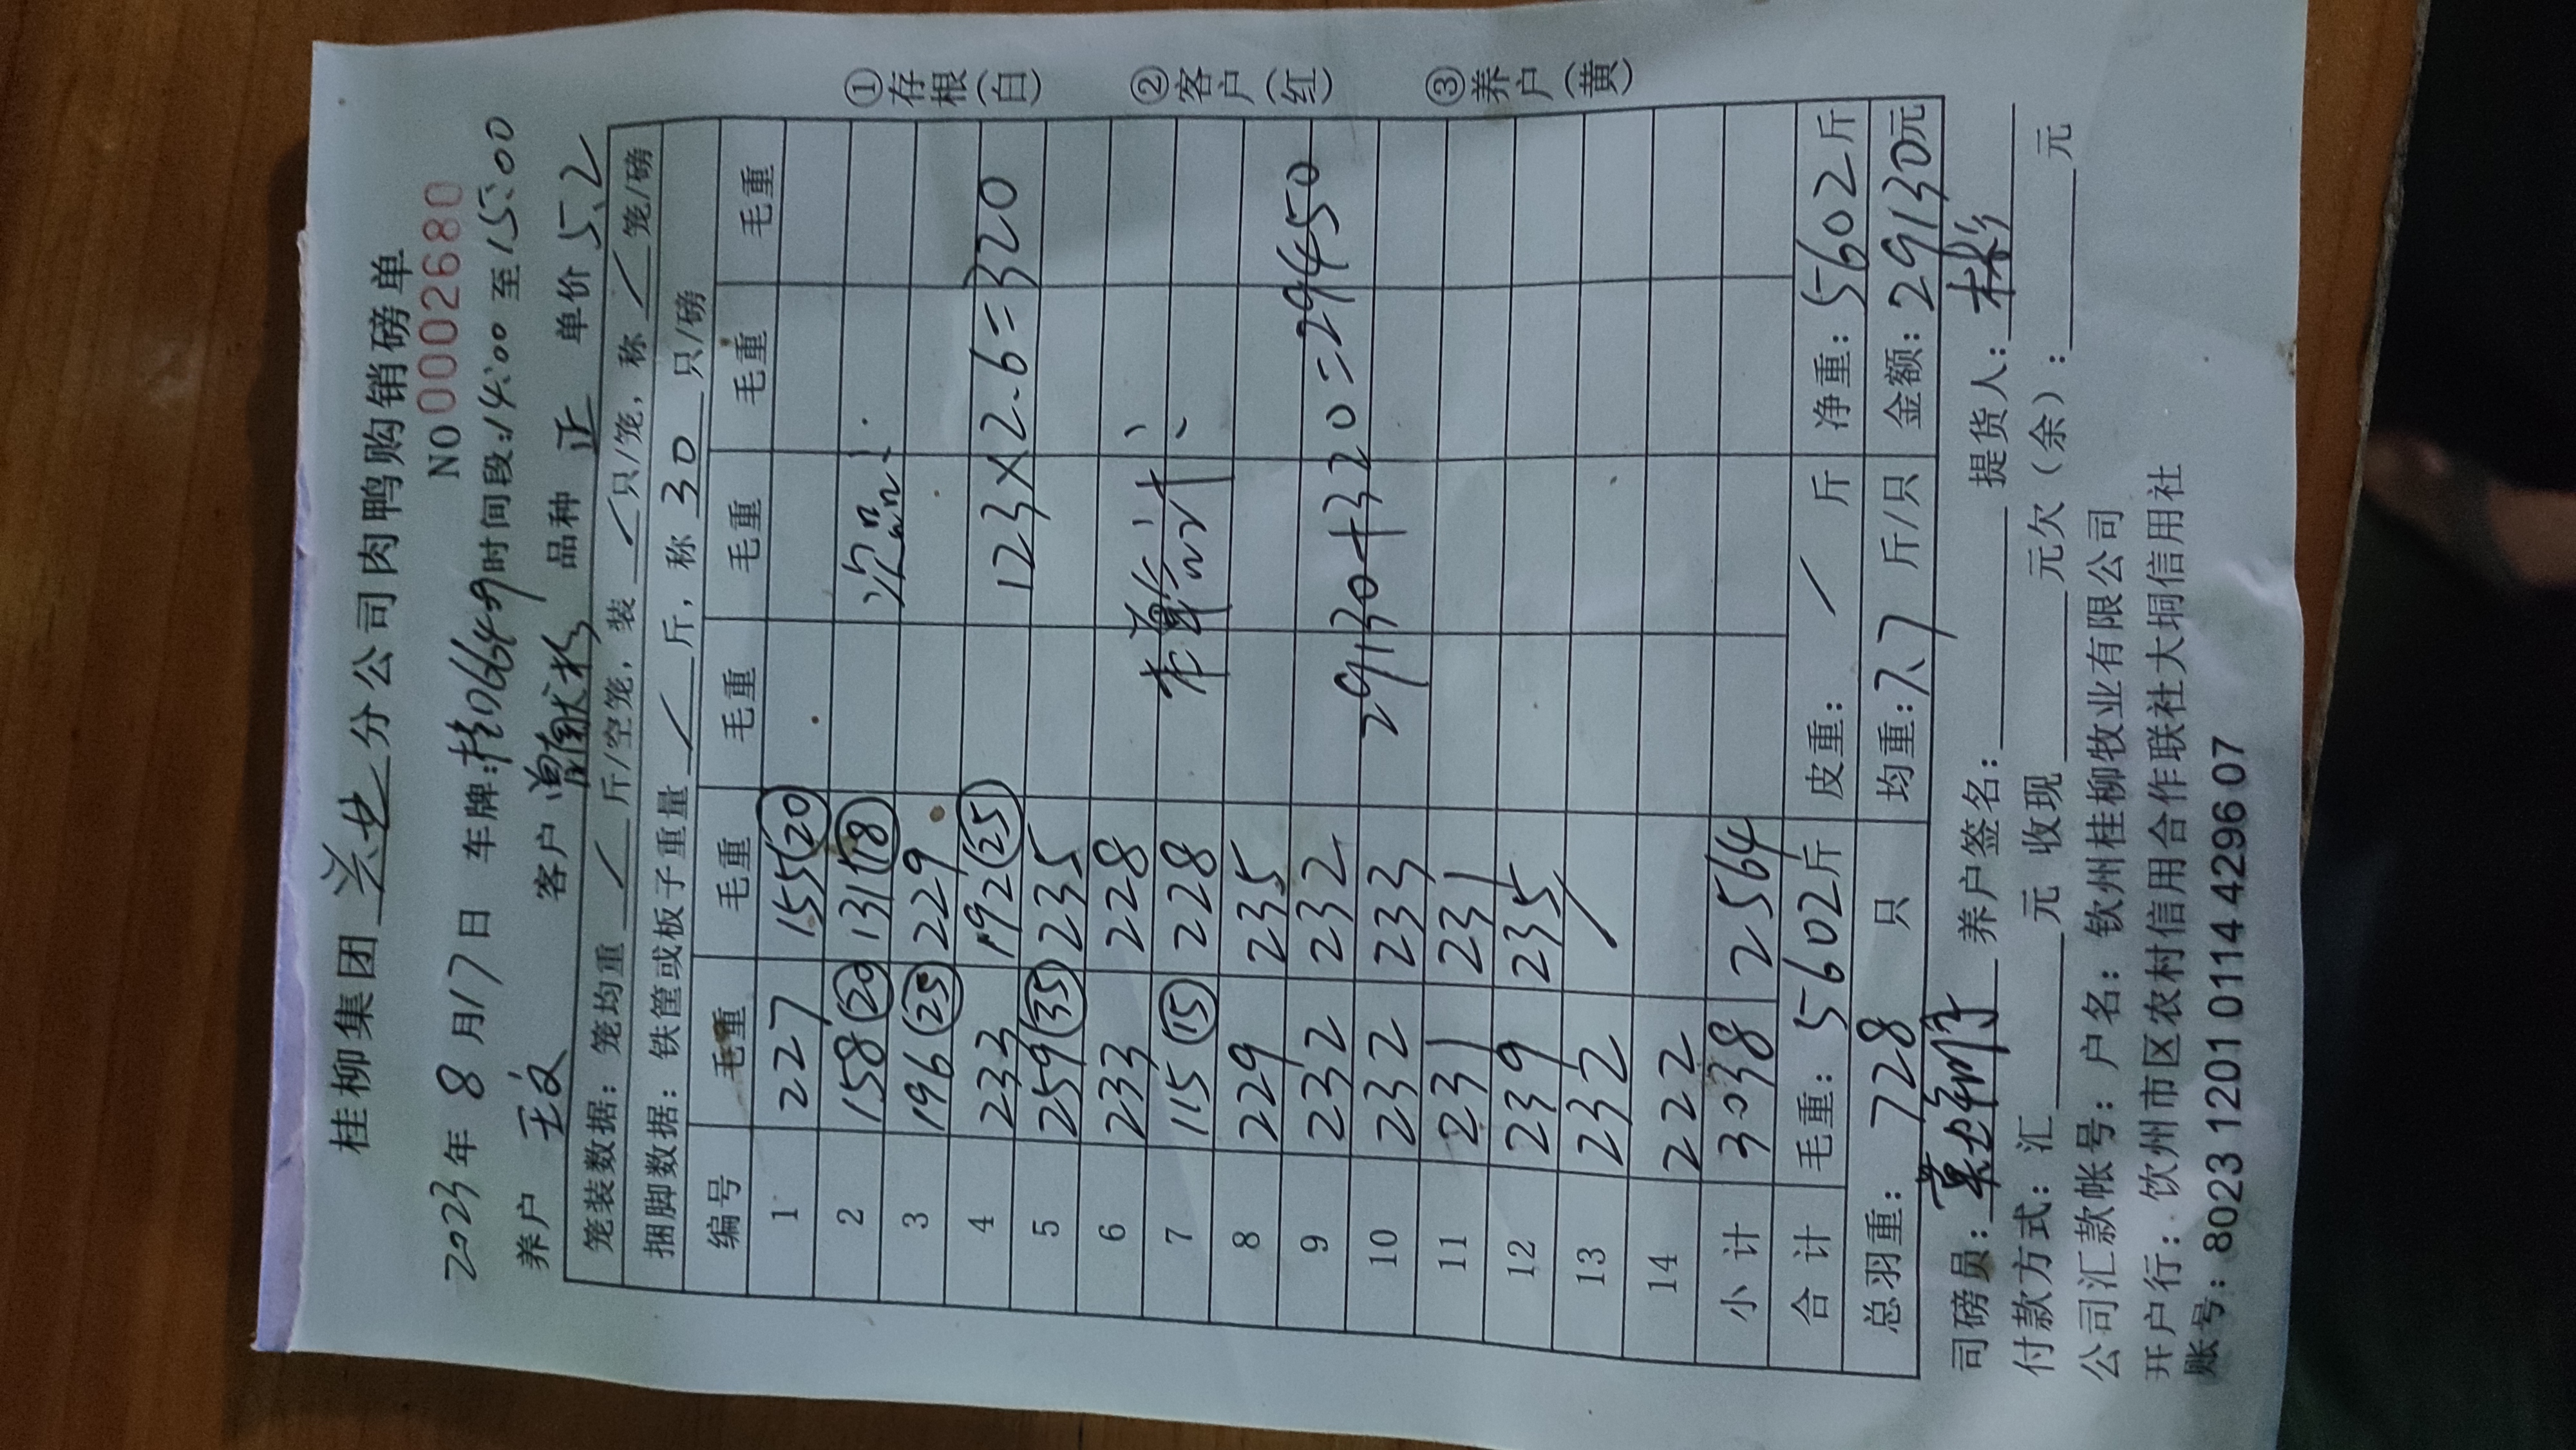 桂柳集团 兴业 分公司肉鸭购销磅单
NO 0002680
2023年 8 月17日 车牌:桂066449时间段:14:00至15:00
养户 王文 客户 曾献彬 品种 正 单价 5.2
笼装数据：笼均重 / 斤/空笼，装 / 只/笼，称 / 笼/磅
捆脚数据：铁筐或板子重量 / 斤，称 30 只/磅
编号 毛重 毛重 毛重 毛重 毛重 毛重
1 227 155(20)
2 158(20) 131(18)
3 196(25) 229
4 233 192(25) 123×2.6=320
5 259(35) 235
6 233 228
7 115(15) 228 本单合计:
8 229 235
9 232 232
10 232 233 29130+320=29450
11 231 231
12 239 235
13 232 /
14 222
小计 3038 2564
合计 毛重：5602斤 皮重： / 斤 净重：5602斤
总羽重：728 只 均重：7.7 斤/只 金额：29130元
司磅员： 养户签名： 提货人：林彬
付款方式：汇 元 收现 元欠（余）： 元
公司汇款帐号：户名：钦州桂柳牧业有限公司
开户行：钦州市区农村信用合作联社大垌信用社
账号：8023 1201 0114 4296 07
①存根(白) ②客户(红) ③养户(黄)